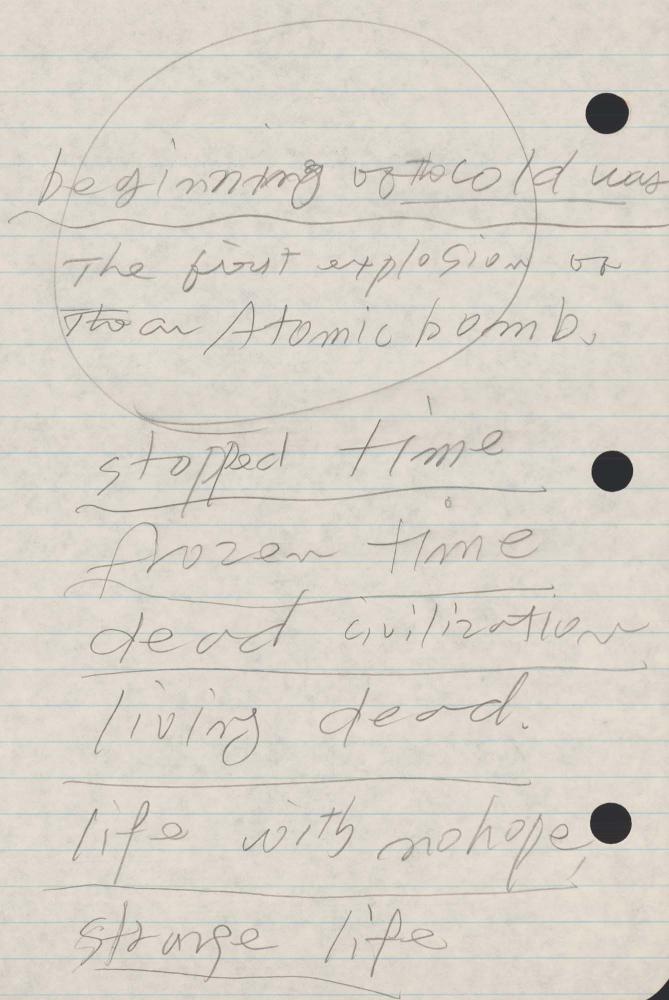 beginning of the cold was
The first explosion on
The an Atomic bomb.
stopped time
frozen time
dead civilization
living dead.
life with no hope,
strange life